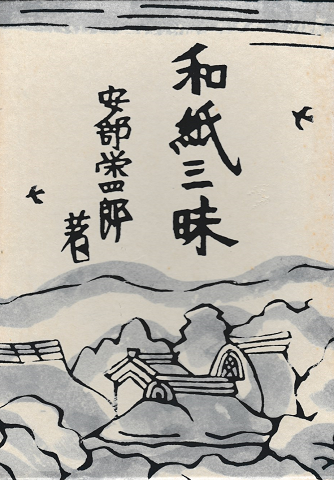 和紙三昧
安部榮四郎
著